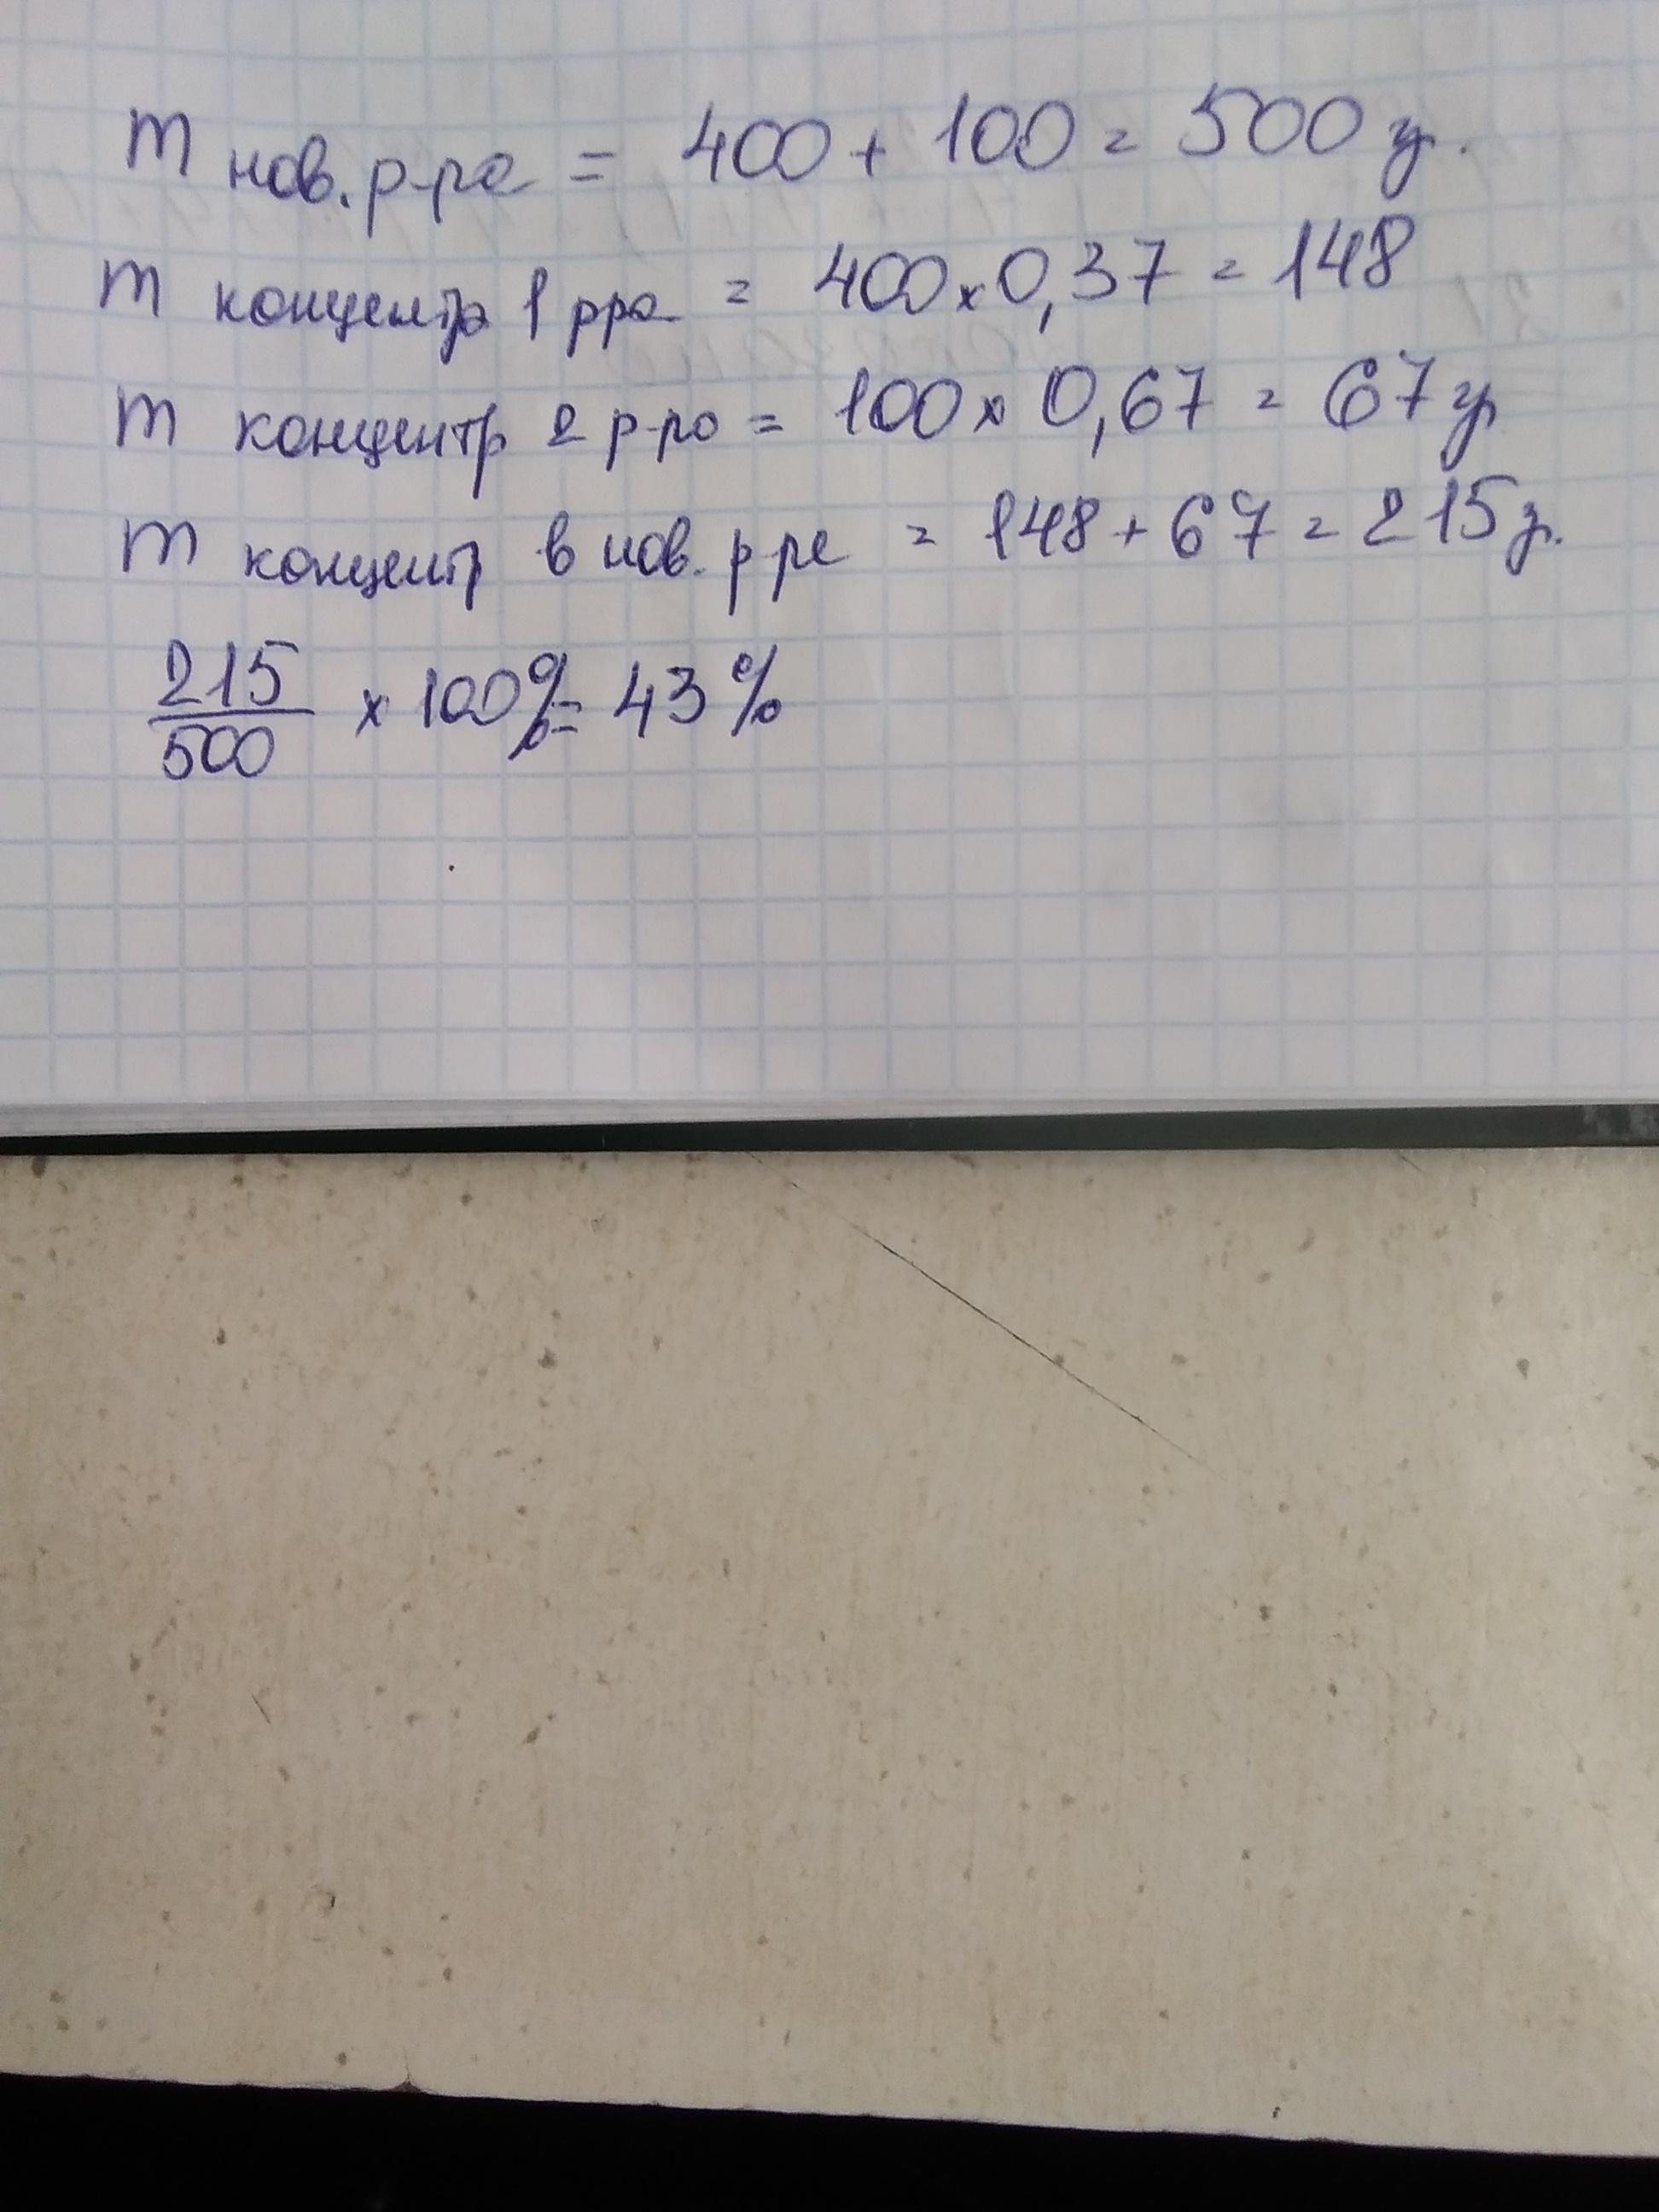 m нов. р-ра = 400 + 100 = 500 гр.
m концентр 1 рра = 400 x 0,37 = 148
m концентр 2 р-ра = 100 x 0,67 = 67 гр
m концентр в нов. р ре = 148 + 67 = 215 г.
215/500 x 100% = 43%